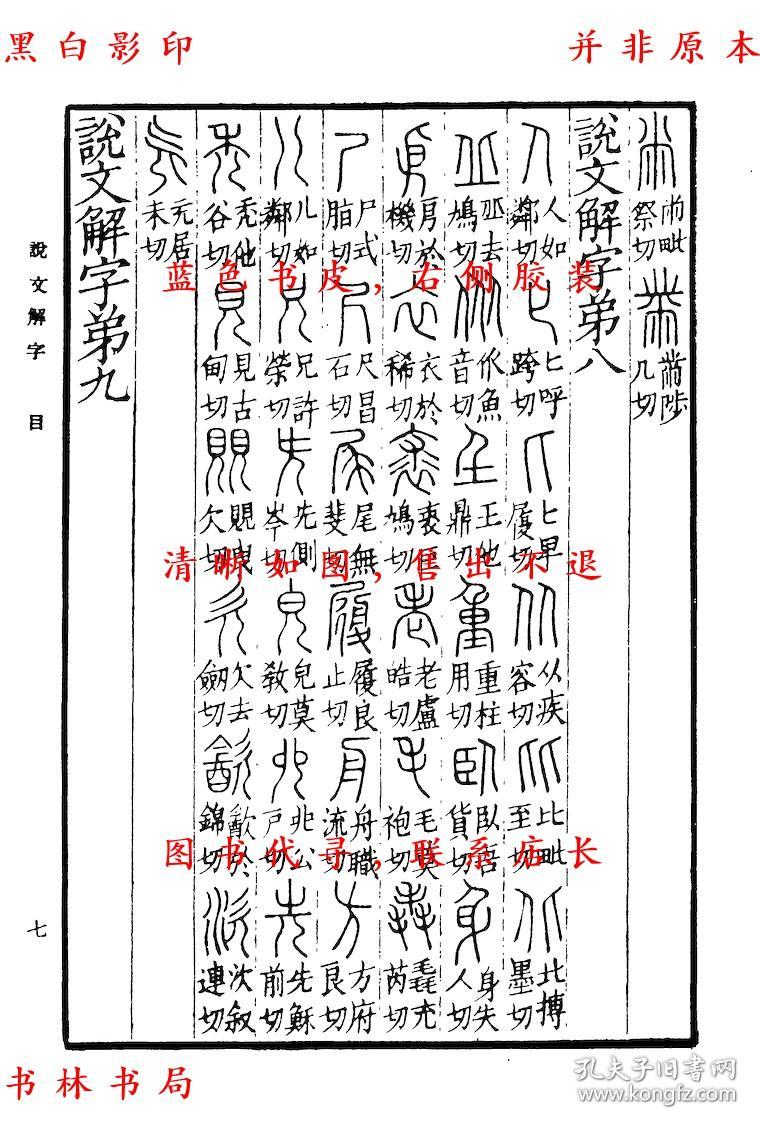 黑白影印
并非原本
㡀毗祭切 黹陟几切
說文解字弟八
人如鄰切 匕呼跨切 匕早履切 从疾容切 比毗至切 北博墨切
丠去鳩切 㐺魚音切 𡈼他鼎切 重柱用切 臥吾貨切 身失人切
㐆於機切 衣於稀切 裘鳩切 老盧皓切 毛莫袍切 毳充芮切
尸式脂切 尺昌石切 尾無斐切 履良止切 舟職流切 方府良切
儿如鄰切 兄許榮切 兂側岑切 皃莫教切 𠑹公戶切 先穌前切
禿他谷切 見古甸切 覞欠切 欠去劒切 㱃於錦切 㳄叙連切
旡居未切
說文解字弟九
說文解字 目
七
蓝色书皮，右侧胶装
清晰如图，售出不退
图书代寻，联系店长
书林书局
孔夫子旧书网
www.kongfz.com